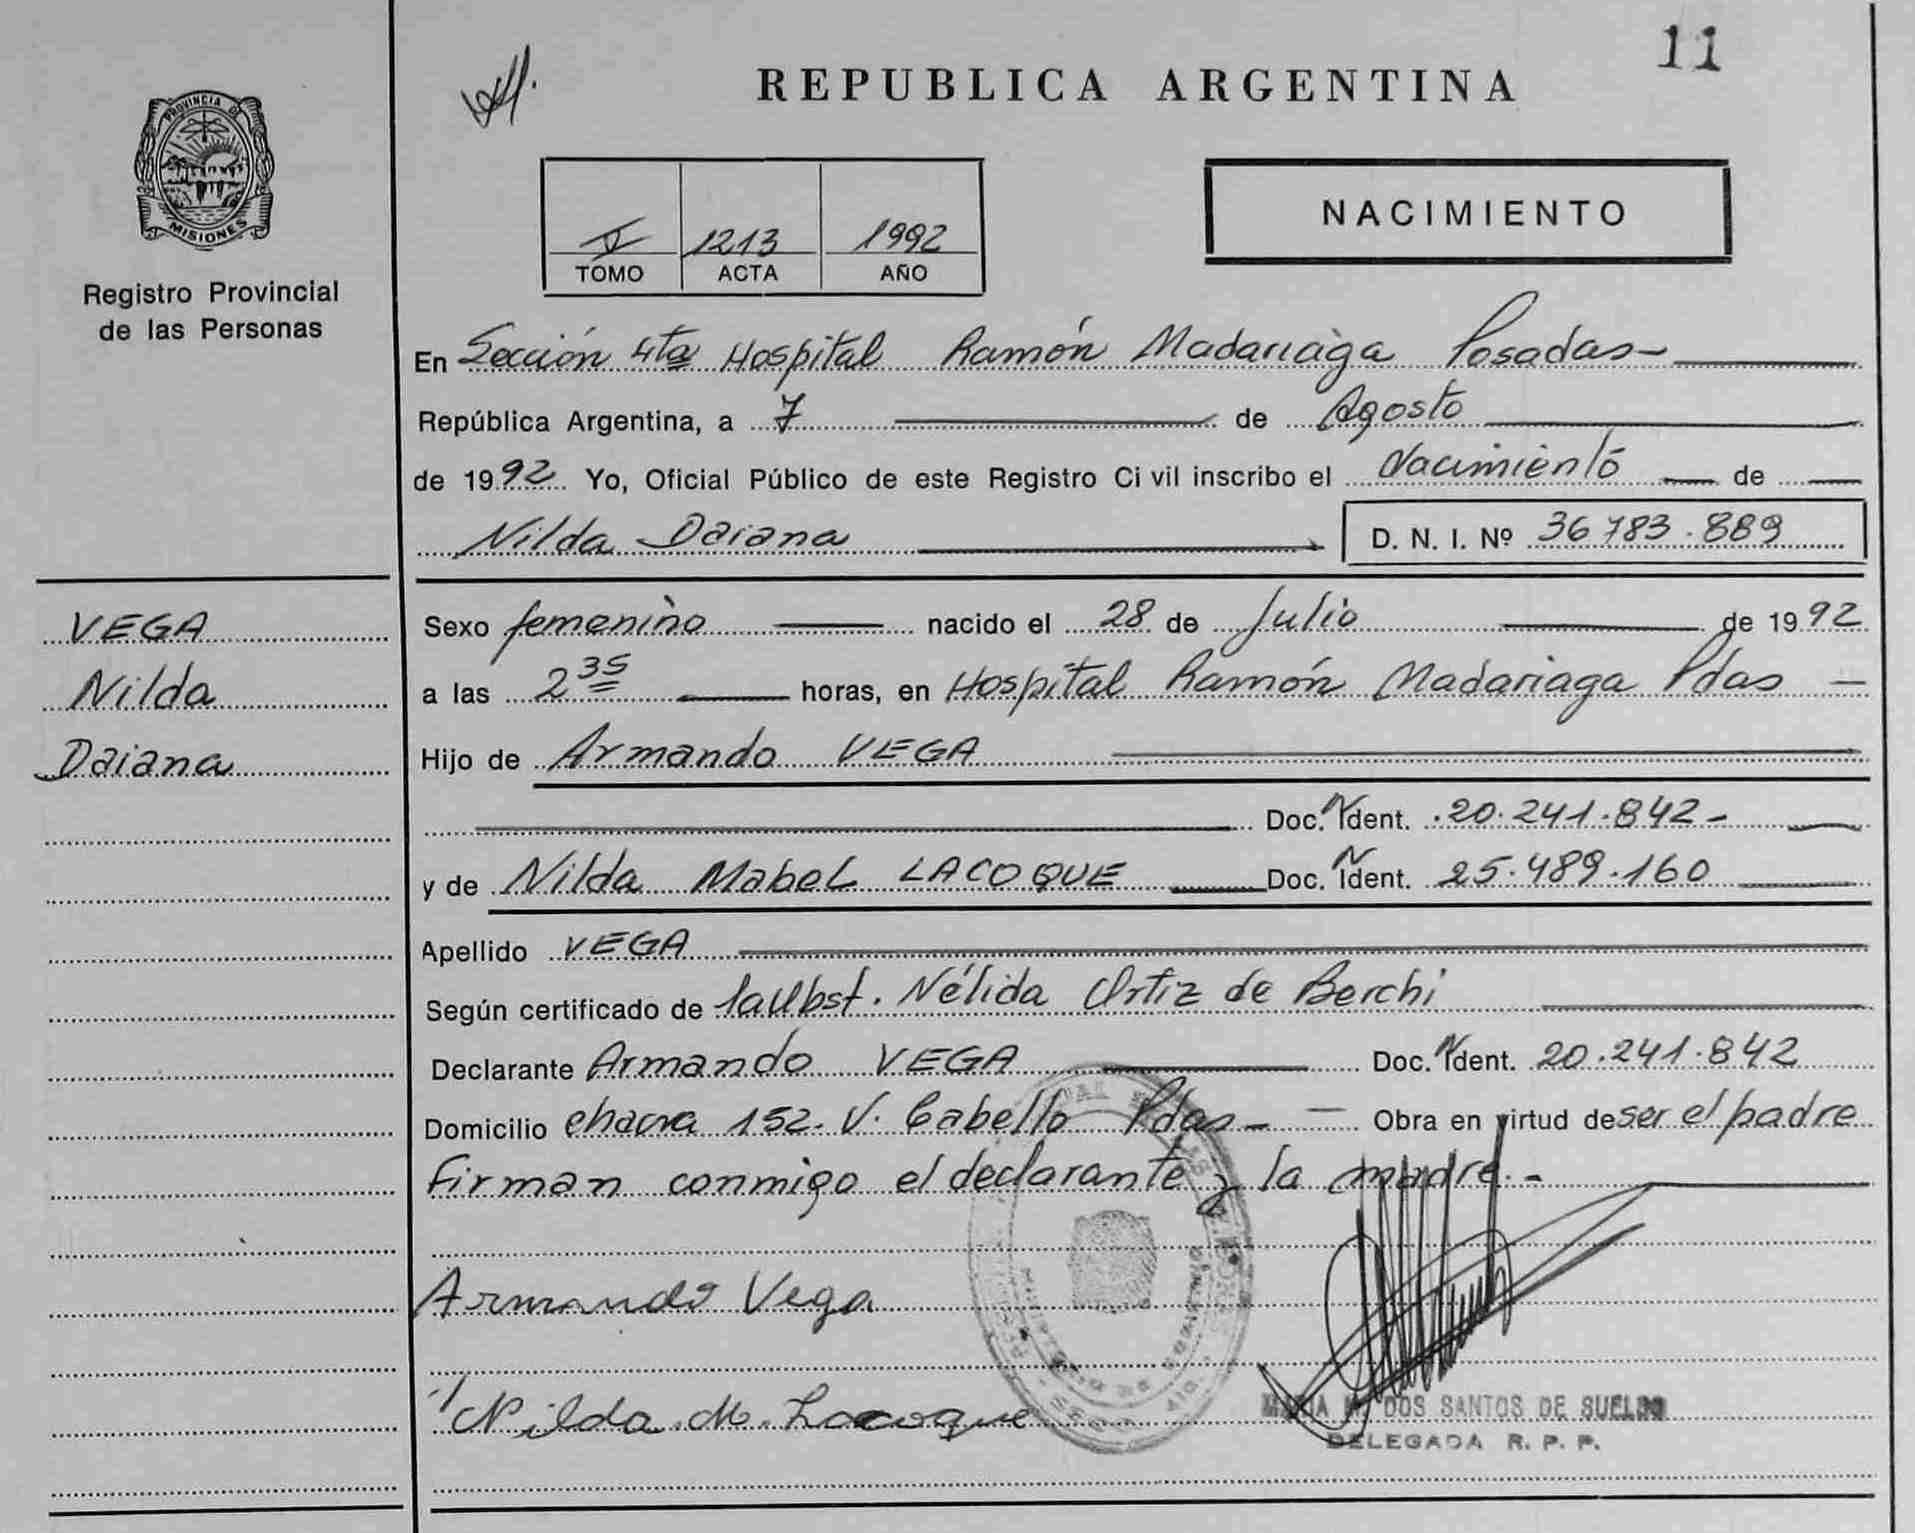 11
REPUBLICA ARGENTINA
PROVINCIA DE
MISIONES
Registro Provincial
de las Personas
1213 1992
TOMO ACTA AÑO
NACIMIENTO
En Sección 4ta Hospital Ramón Madariaga Posadas-
República Argentina, a 7 de Agosto
de 1992 Yo, Oficial Público de este Registro Civil inscribo el Nacimiento de
Nilda Daiana D. N. I. Nº 36783.889
VEGA
Nilda
Daiana
Sexo femenino nacido el 28 de Julio de 1992
a las 2 35 horas, en Hospital Ramón Madariaga Pdas -
Hijo de Armando VEGA
Doc. N Ident. 20.241.842-
y de Nilda Mabel LACOQUE Doc. N Ident. 25.489.160
Apellido VEGA
Según certificado de la Obst. Nélida Ortiz de Berchi
Declarante Armando VEGA Doc. N Ident. 20.241.842
Domicilio chacra 152. V. Cabello Pdas- Obra en virtud de ser el padre
Firman conmigo el declarante y la madre.-
Armando Vega
Nilda M. Lacoque
DOS SANTOS DE SUELDO
DELEGADA R. P. P.